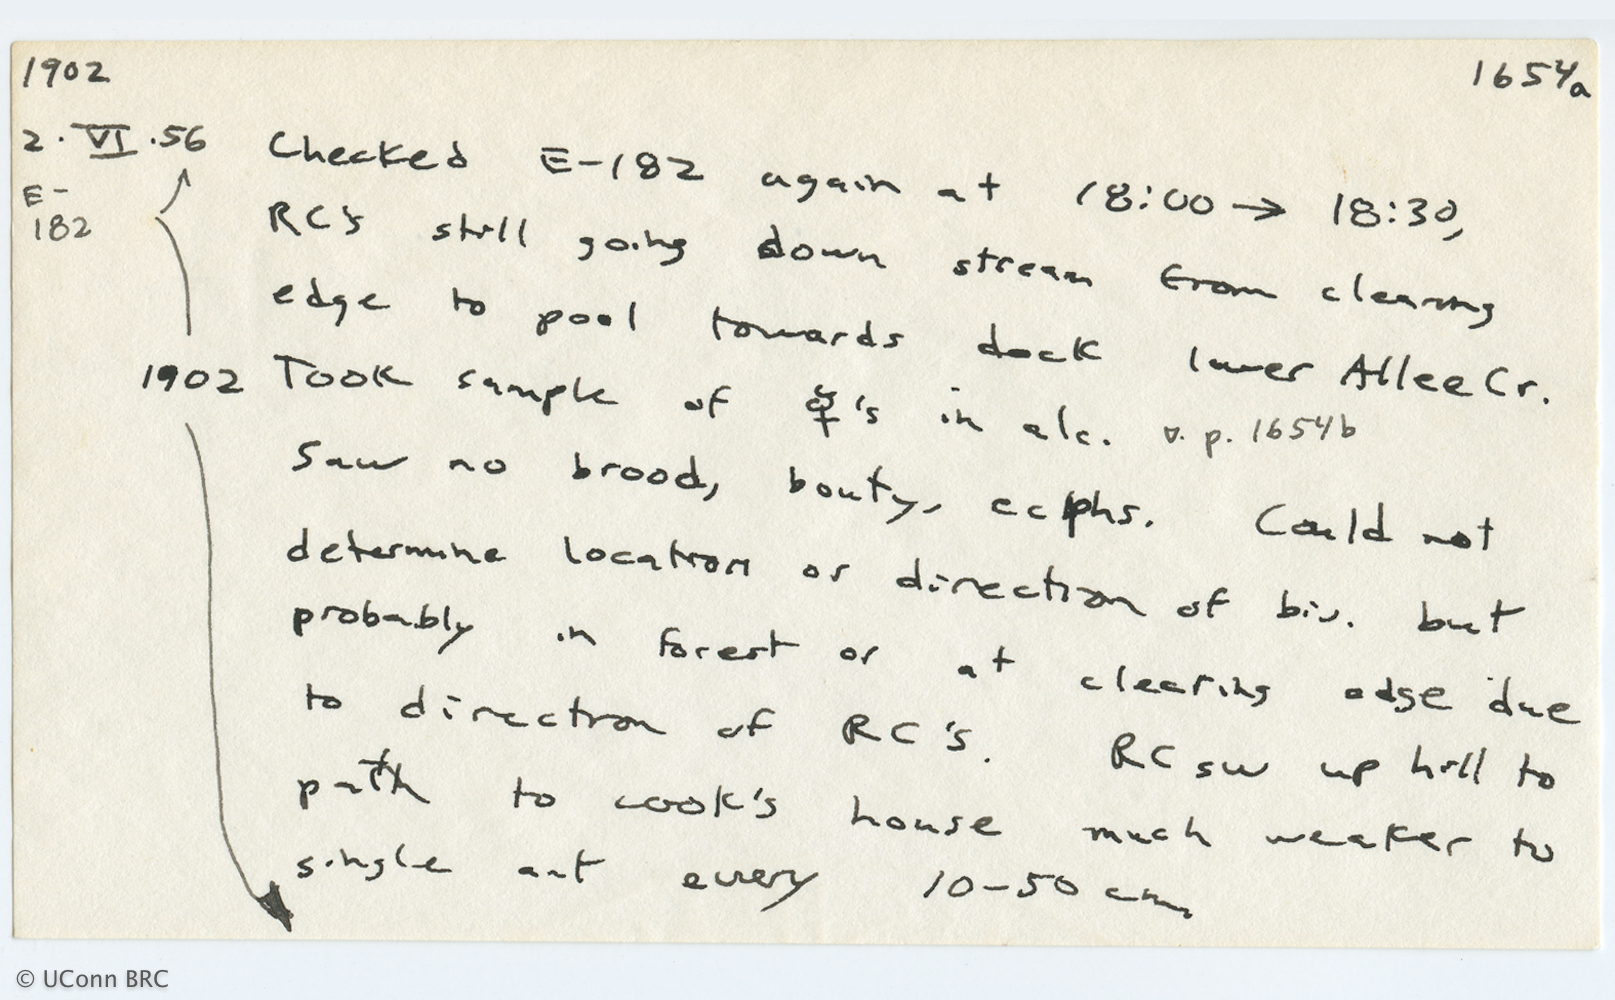 1902 1654a
2·VI·56 Checked E-182 again at 18:00 → 18:30,
E-182 RC's still going down stream from clearing
edge to pool towards dock lower Allee Cr.
1902 Took sample of ☿'s in alc. v. p. 1654b
Saw no brood, bouty, ecphs. Could not
determine location or direction of biv. but
probably in forest or at clearing edge due
to direction of RC's. RC sw up hill to
path to cook's house much weaker to
single ant every 10-50 cm.
© UConn BRC